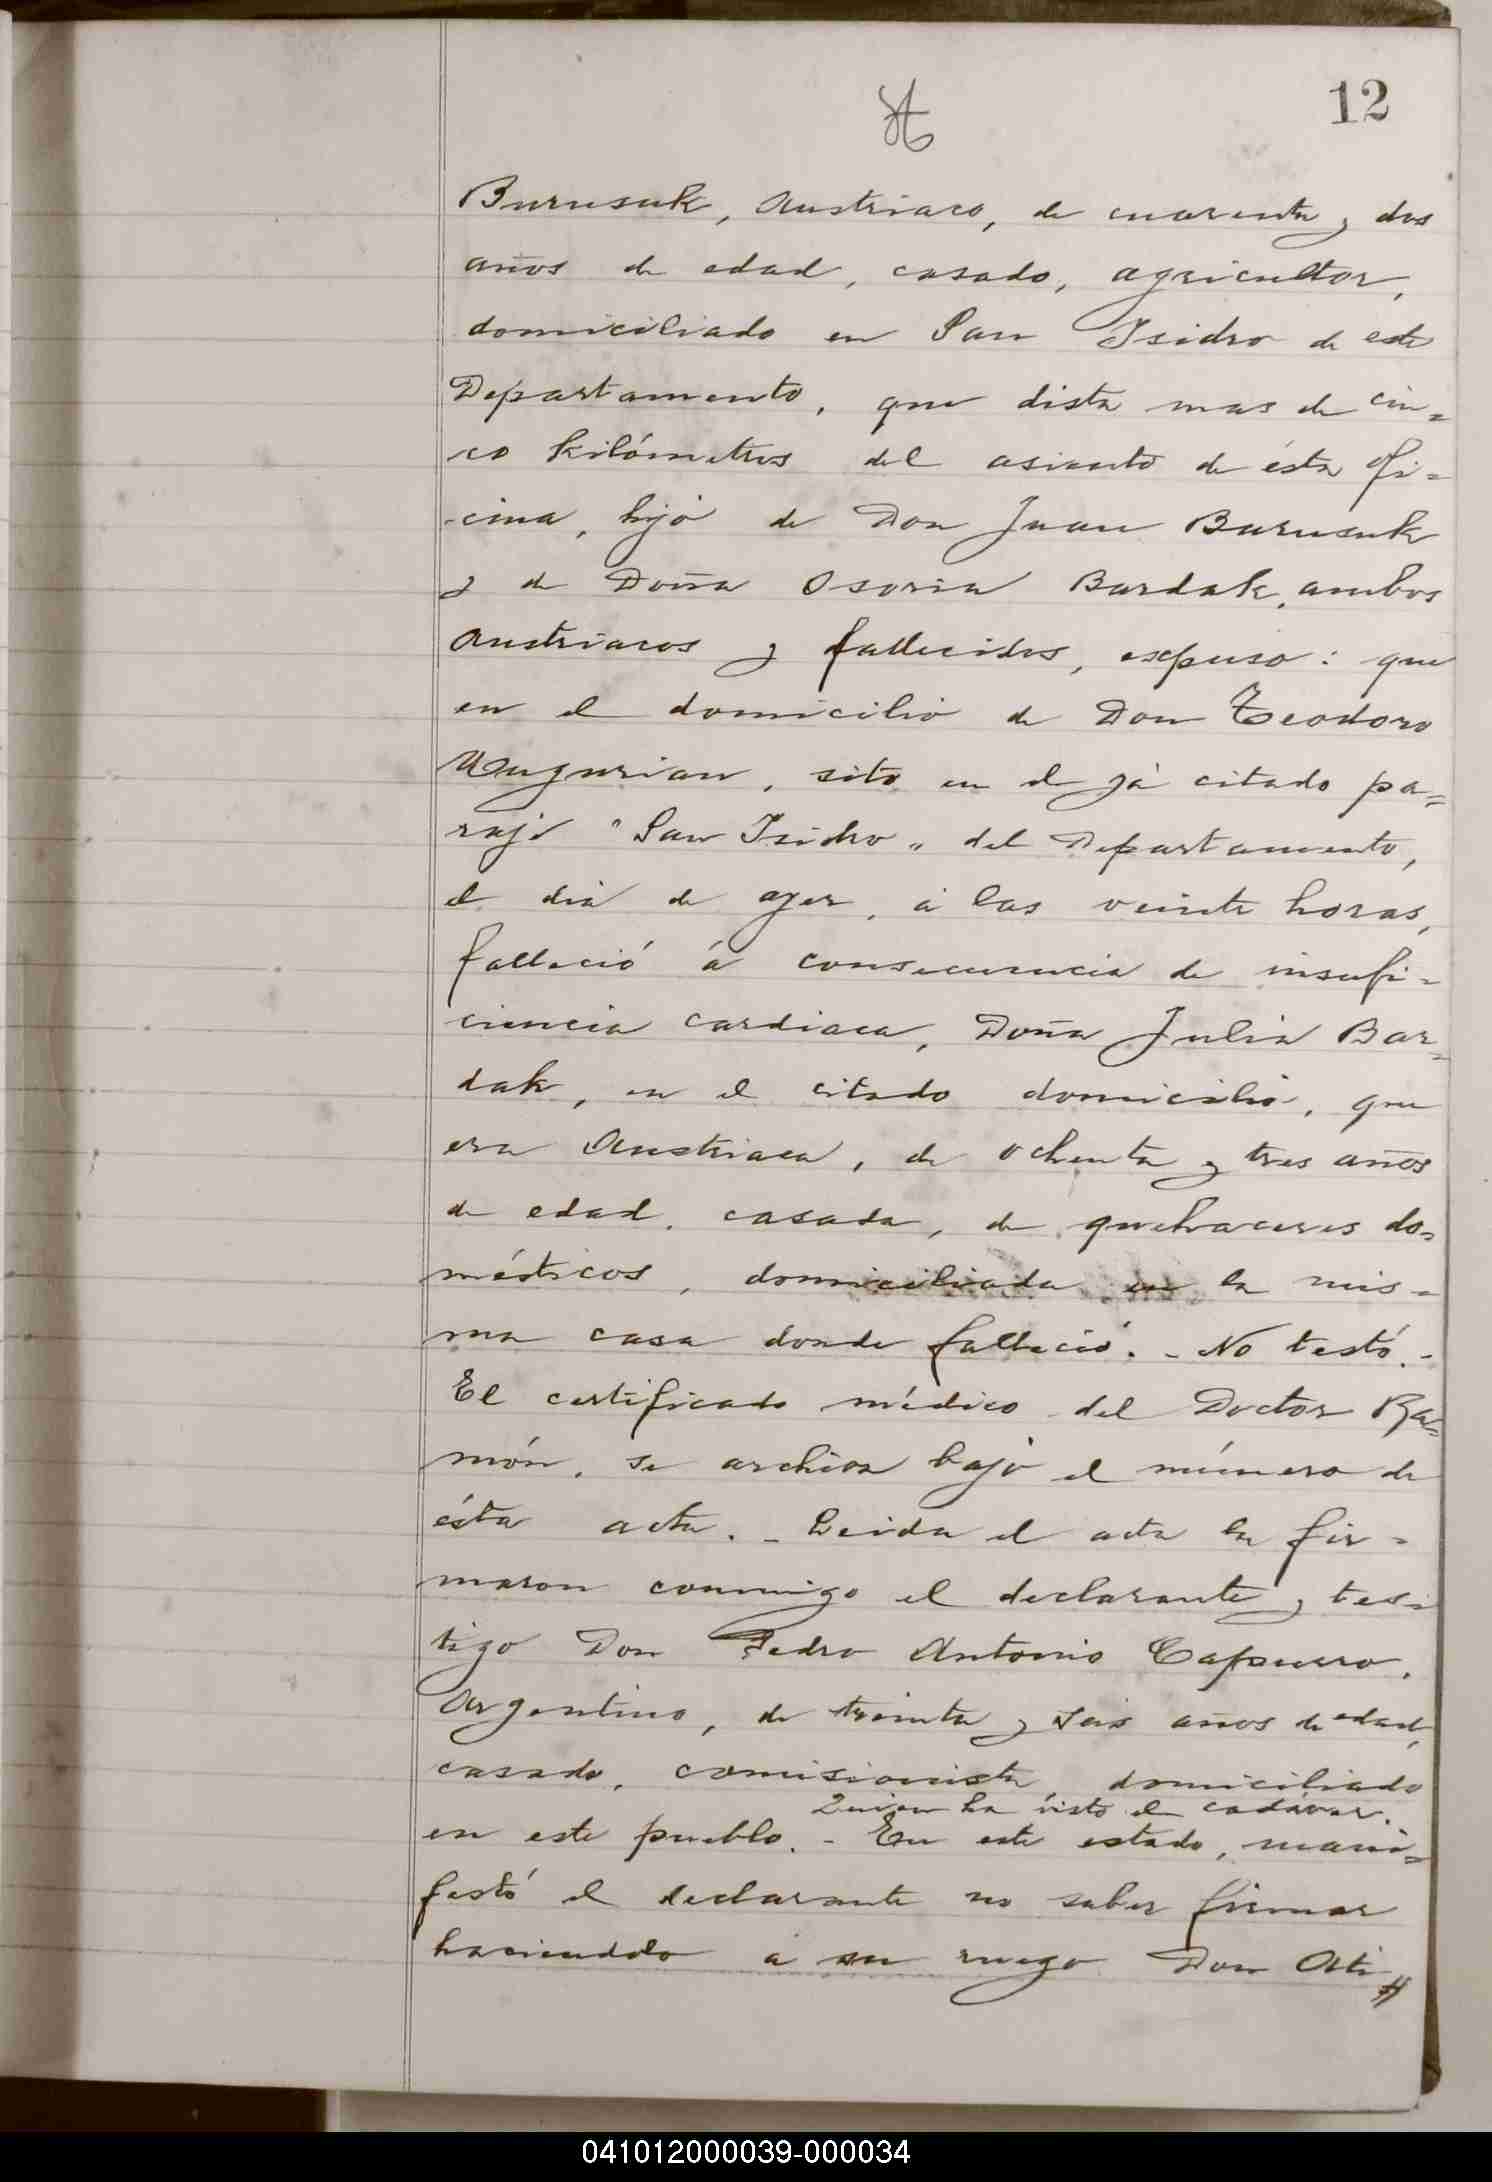 12
Burusuk, Austriaco, de cuarenta y dos
años de edad, casado, agricultor,
domiciliado en San Isidro de este
Departamento, que dista mas de cin=
co kilómetros del asiento de ésta ofi=
cina, hijo de Don Juan Burusuk
y de Doña Osoria Bardak, ambos
Austriacos y fallecidos, expuso: que
en el domicilio de Don Teodoro
sito en el yá citado pa=
raje "San Isidro" del Departamento,
el dia de ayer, á las veinte horas,
falleció á consecuencia de insufi=
ciencia cardiaca, Doña Julia Bar=
dak, en el citado domicilio, que
era Austriaca, de ochenta y tres años
de edad, casada, de quehaceres do=
mésticos, domiciliada en la mis=
ma casa donde falleció. - No testó. -
El certificado médico del Doctor Ra=
món, se archiva bajo el número de
ésta acta. - Leida el acta la fir=
maron conmigo el declarante y tes=
tigo Don Pedro Antonio Capurro,
Argentino, de treinta y seis años de edad,
casado, comisionista, domiciliado
Quien ha visto el cadáver.
en este pueblo. - En este estado, mani=
festó el declarante no saber firmar
haciendolo á su ruego Don Ati
041012000039-000034